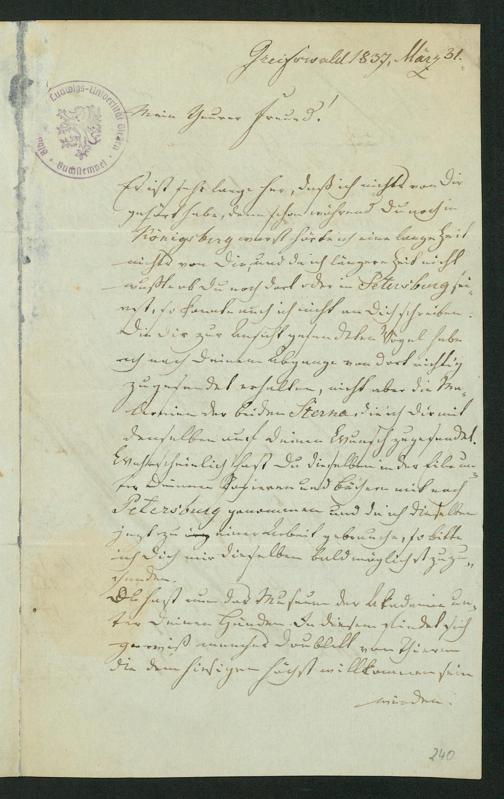 Greifswald 1837, März 31.
Mein theurer Freund!
Er ist sehr lange her, daß ich nichts von Dir
gehört habe, denn schon während Du noch in
Königsberg warst hörte ich eine lange Zeit
nichts von Dir, und da ich längere Zeit nicht
wußte ob Du noch dort oder in Petersburg sei-
est, so konnte auch ich nicht an Dich schreiben.
Die Dir zur Ansicht gesendeten Vögel habe
ich nach Deinem Abgange von dort richtig
zugesendet erhalten, nicht aber die Ma-
lereien der beiden Sterna, die ich Dir mit
denselben auf Deinen Wunsch zugesendet.
Wahrscheinlich hast Du dieselben in der Eile un-
ter Deinen Papieren und Büchern mit nach
Petersburg genommen und da ich dieselben
jetzt zu einer Arbeit gebrauche, so bitte
ich Dich mir dieselben baldmöglichst zuzu-
senden.
Du hast nun das Museum der Akademie un-
ter Deinen Händen. In diesem findet sich
gewiß manches Doublett von Thieren
die dem hiesigen höchst willkommen sein
würden.
240
Ludwigs-Universität
Buchstempel